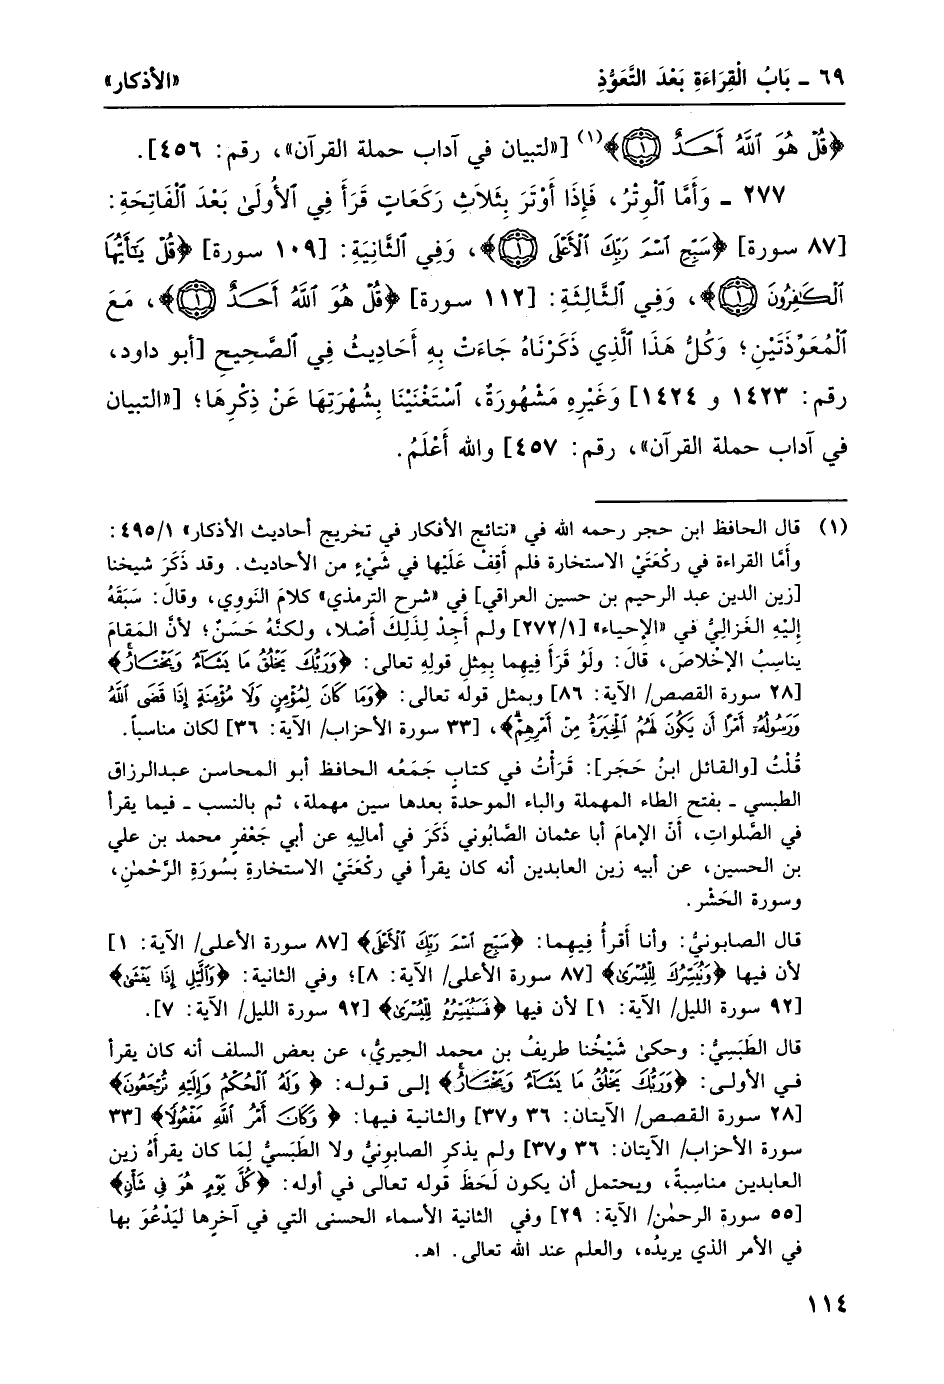 ٦٩ - بَابُ الْقِرَاءَةِ بَعْدَ التَّعَوُّذِ «الأذكار»
﴿قُلْ هُوَ ٱللَّهُ أَحَدٌ ۝١﴾(١) [«التبيان في آداب حملة القرآن»، رقم: ٤٥٦].
٢٧٧ - وَأَمَّا ٱلْوِتْرُ، فَإِذَا أَوْتَرَ بِثَلَاثِ رَكَعَاتٍ قَرَأَ فِي ٱلأُولَىٰ بَعْدَ ٱلْفَاتِحَةِ:
[٨٧ سورة] ﴿سَبِّحِ ٱسْمَ رَبِّكَ ٱلْأَعْلَى ۝١﴾، وَفِي ٱلثَّانِيَةِ: [١٠٩ سورة] ﴿قُلْ يَـٰٓأَيُّهَا
ٱلْكَـٰفِرُونَ ۝١﴾، وَفِي ٱلثَّالِثَةِ: [١١٢ سورة] ﴿قُلْ هُوَ ٱللَّهُ أَحَدٌ ۝١﴾، مَعَ
ٱلْمُعَوِّذَتَيْنِ؛ وَكُلُّ هَذَا ٱلَّذِي ذَكَرْنَاهُ جَاءَتْ بِهِ أَحَادِيثُ فِي ٱلصَّحِيحِ [أبو داود،
رقم: ١٤٢٣ و ١٤٢٤] وَغَيْرِهِ مَشْهُورَةٌ، ٱسْتَغْنَيْنَا بِشُهْرَتِهَا عَنْ ذِكْرِهَا؛ [«التبيان
في آداب حملة القرآن»، رقم: ٤٥٧] والله أَعْلَمُ.
(١) قال الحافظ ابن حجر رحمه الله في «نتائج الأفكار في تخريج أحاديث الأذكار» ٤٩٥/١:
وأَمَّا القراءة في ركْعَتَيْ الاستخارة فلم أَقِفْ عَلَيْها في شَيْءٍ من الأحاديث. وقد ذَكَرَ شيخنا
[زين الدين عبد الرحيم بن حسين العراقي] في «شرح الترمذي» كلامَ النَّووي، وقالَ: سَبَقَهُ
إِلَيْهِ الغَزاليُّ في «الإحياء» [٢٧٢/١] ولم أَجِدْ لِذَلِكَ أَصْلا، ولكنَّهُ حَسَنٌ؛ لأنَّ المَقامَ
يناسِبُ الإخْلاصَ، قالَ: ولَوْ قَرَأَ فِيهِما بِمِثلِ قولِهِ تعالى: ﴿وَرَبُّكَ يَخْلُقُ مَا يَشَآءُ وَيَخْتَارُ﴾
[٢٨ سورة القصص/ الآية: ٨٦] وبمثل قوله تعالى: ﴿وَمَا كَانَ لِمُؤْمِنٍ وَلَا مُؤْمِنَةٍ إِذَا قَضَى ٱللَّهُ
وَرَسُولُهُۥٓ أَمْرًا أَن يَكُونَ لَهُمُ ٱلْخِيَرَةُ مِنْ أَمْرِهِمْ﴾، [٣٣ سورة الأحزاب/ الآية: ٣٦] لكان مناسباً.
قُلْتُ [والقائل ابنُ حَجَر]: قَرَأْتُ في كتابٍ جَمَعُه الحافظ أبو المحاسن عبدالرزاق
الطبسي - بفتح الطاء المهملة والباء الموحدة بعدها سين مهملة، ثم بالنسب - فيما يقرأ
في الصَّلواتِ، أنّ الإمامَ أبا عثمان الصَّابُوني ذَكَرَ في أماليهِ عن أبي جَعْفرٍ محمد بن علي
بن الحسين، عن أبيه زين العابدين أنه كان يقرأ في ركْعَتَيْ الاستخارةِ بسُورَةِ الرَّحْمٰنِ،
وسورة الحَشْر.
قال الصابونيُّ: وأنا أَقرأُ فِيهِما: ﴿سَبِّحِ ٱسْمَ رَبِّكَ ٱلْأَعْلَى﴾ [٨٧ سورة الأعلى/ الآية: ١]
لأن فيها ﴿وَنُيَسِّرُكَ لِلْيُسْرَىٰ﴾ [٨٧ سورة الأعلى/ الآية: ٨]؛ وفي الثانية: ﴿وَٱلَّيْلِ إِذَا يَغْشَىٰ﴾
[٩٢ سورة الليل/ الآية: ١] لأن فيها ﴿فَسَنُيَسِّرُهُۥ لِلْيُسْرَىٰ﴾ [٩٢ سورة الليل/ الآية: ٧].
قال الطَبَسِيُّ: وحكىٰ شَيْخُنا طريفُ بن محمد الحِيريُّ، عن بعض السلف أنه كان يقرأ
في الأولى: ﴿وَرَبُّكَ يَخْلُقُ مَا يَشَآءُ وَيَخْتَارُ﴾ إلى قوله: ﴿وَلَهُ ٱلْحُكْمُ وَإِلَيْهِ تُرْجَعُونَ﴾
[٢٨ سورة القصص/ الآيتان: ٣٦ و٣٧] والثانية فيها: ﴿وَكَانَ أَمْرُ ٱللَّهِ مَفْعُولًا﴾ [٣٣
سورة الأحزاب/ الآيتان: ٣٦ و٣٧] ولم يذكرِ الصابونيُّ ولا الطَبَسيُّ لِمَا كان يقرأهُ زين
العابدين مناسِبةً، ويحتمل أن يكون لَحَظَ قوله تعالى في أوله: ﴿كُلَّ يَوْمٍ هُوَ فِى شَأْنٍ﴾
[٥٥ سورة الرحمٰن/ الآية: ٢٩] وفي الثانية الأسماء الحسنى التي في آخرِها ليَدْعُوَ بها
في الأمر الذي يريدُه، والعلم عند الله تعالى. اهـ.
١١٤